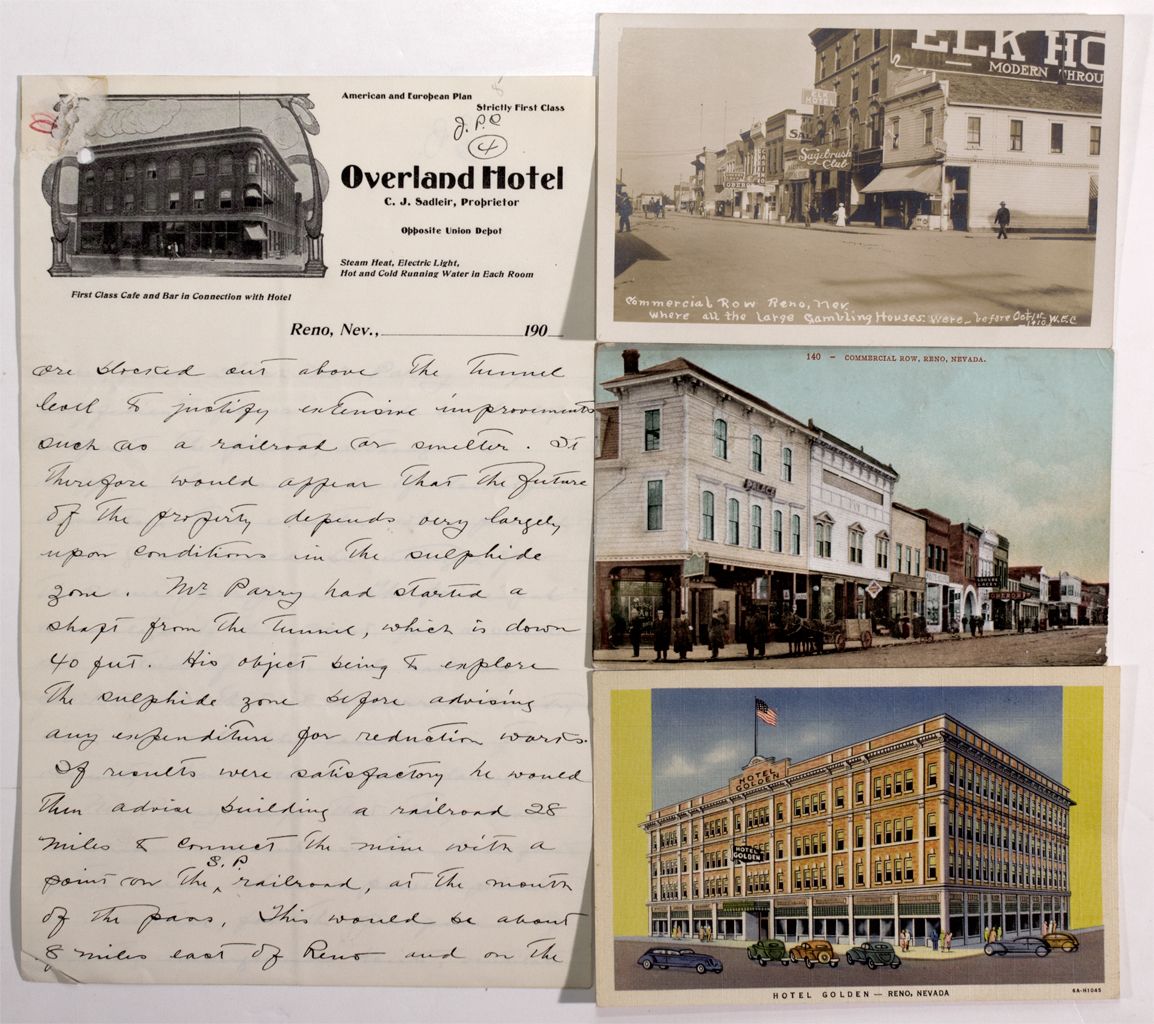 American and European Plan
Strictly First Class
J.P.C
4
Overland Hotel
C. J. Sadleir, Proprietor
Opposite Union Depot
Steam Heat, Electric Light,
Hot and Cold Running Water in Each Room
First Class Cafe and Bar in Connection with Hotel
Reno, Nev., 190
are blocked out above the tunnel
level to justify extensive improvements
such as a railroad or smelter. It
therefore would appear that the future
of the property depends very largely
upon conditions in the sulphide
zone. Mr. Parry had started a
shaft from the tunnel, which is down
40 feet. His object being to explore
the sulphide zone before advising
any expenditure for reduction works.
If results were satisfactory he would
then advise building a railroad 28
miles to connect the mine with a
point on the S.P. railroad, at the mouth
of the pass. This would be about
8 miles east of Reno and on the
ELK HO
MODERN THROU
ELK
HOTEL
SAL
Sagebrush
Club
OBERON
CASINO
Commercial Row Reno, Nev.
where all the large Gambling Houses were before Oct. 1st 1910 W.E.C
140 - COMMERCIAL ROW, RENO, NEVADA.
PALACE
LOUVRE
OBERON
HOTEL
GOLDEN
HOTEL
GOLDEN
HOTEL GOLDEN — RENO, NEVADA
6A-H1045